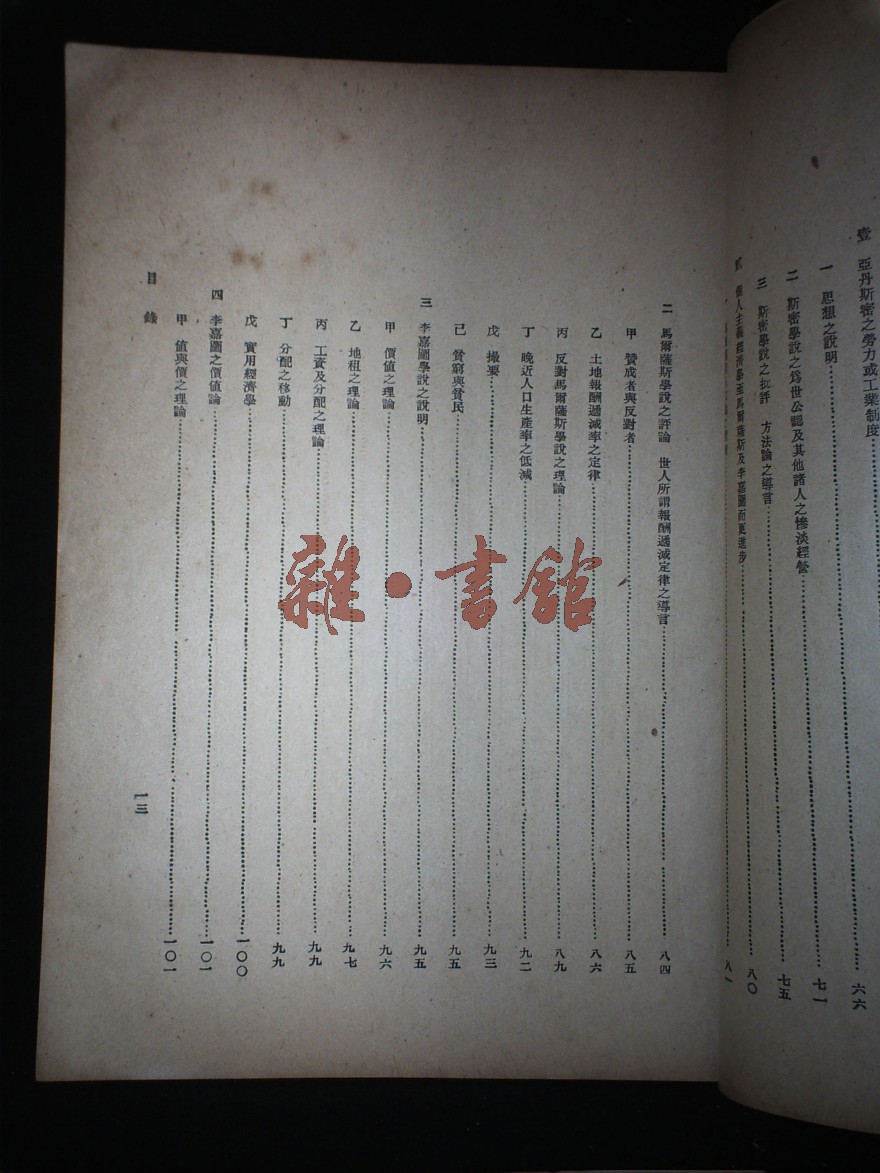 壹 亞丹斯密之勞力或工業制度……六六
一 思想之說明……七一
二 斯密學說之爲世公認及其他諸人之慘淡經營……七五
三 斯密學說之批評 方法論之導言……八〇
貳 個人主義經濟學至馬爾薩斯及李嘉圖而更進步……八一
二 馬爾薩斯學說之評論 世人所謂報酬遞減定律之導言……八四
甲 贊成者與反對者……八五
乙 土地報酬遞減率之定律……八六
丙 反對馬爾薩斯學說之理論……八九
丁 晚近人口生產率之低減……九二
戊 撮要……九三
己 貧窮與貧民……九五
三 李嘉圖學說之說明……九五
甲 價值之理論……九六
乙 地租之理論……九七
丙 工資及分配之理論……九九
丁 分配之移動……九九
戊 實用經濟學……一〇〇
四 李嘉圖之價値論……一〇一
甲 値與價之理論……一〇一
目錄
一三
雜·書館